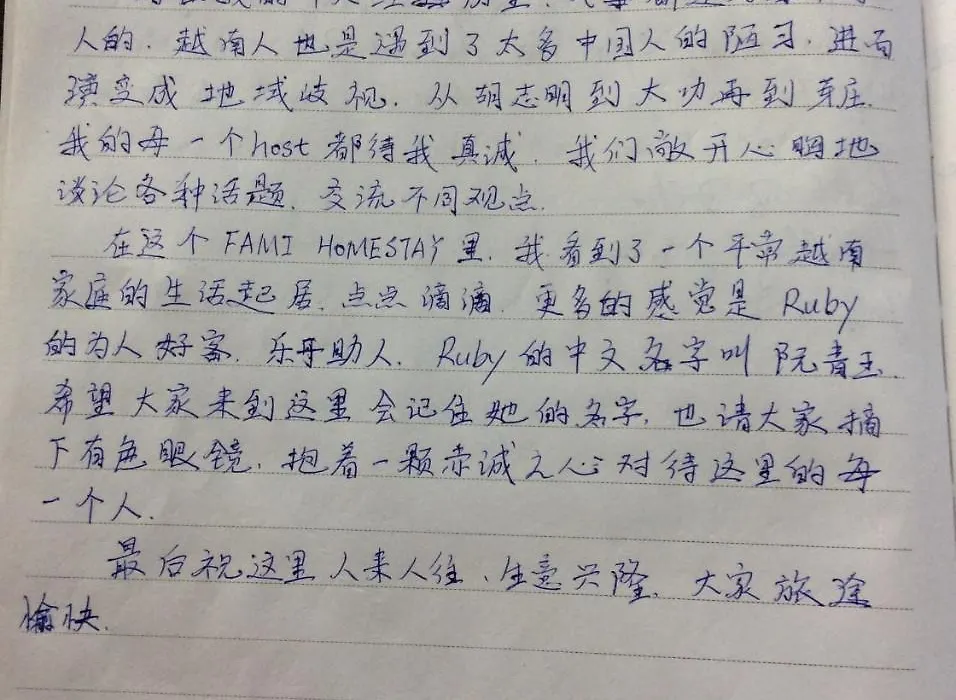 人的. 越南人也是遇到了太多中国人的陋习. 进而
演变成地域歧视. 从胡志明到大叻再到芽庄.
我的每一个host都待我真诚. 我们敞开心胸地
谈论各种话题. 交流不同观点.
在这个FAMI HOMESTAY里. 我看到了一个平常越南
家庭的生活起居. 点点滴滴. 更多的感觉是Ruby
的为人好客. 乐于助人. Ruby的中文名字叫阮青玉.
希望大家来到这里会记住她的名字. 也请大家摘
下有色眼镜. 抱着一颗赤诚之心对待这里的每
一个人.
最后祝这里人来人往、生意兴隆. 大家旅途
愉快.